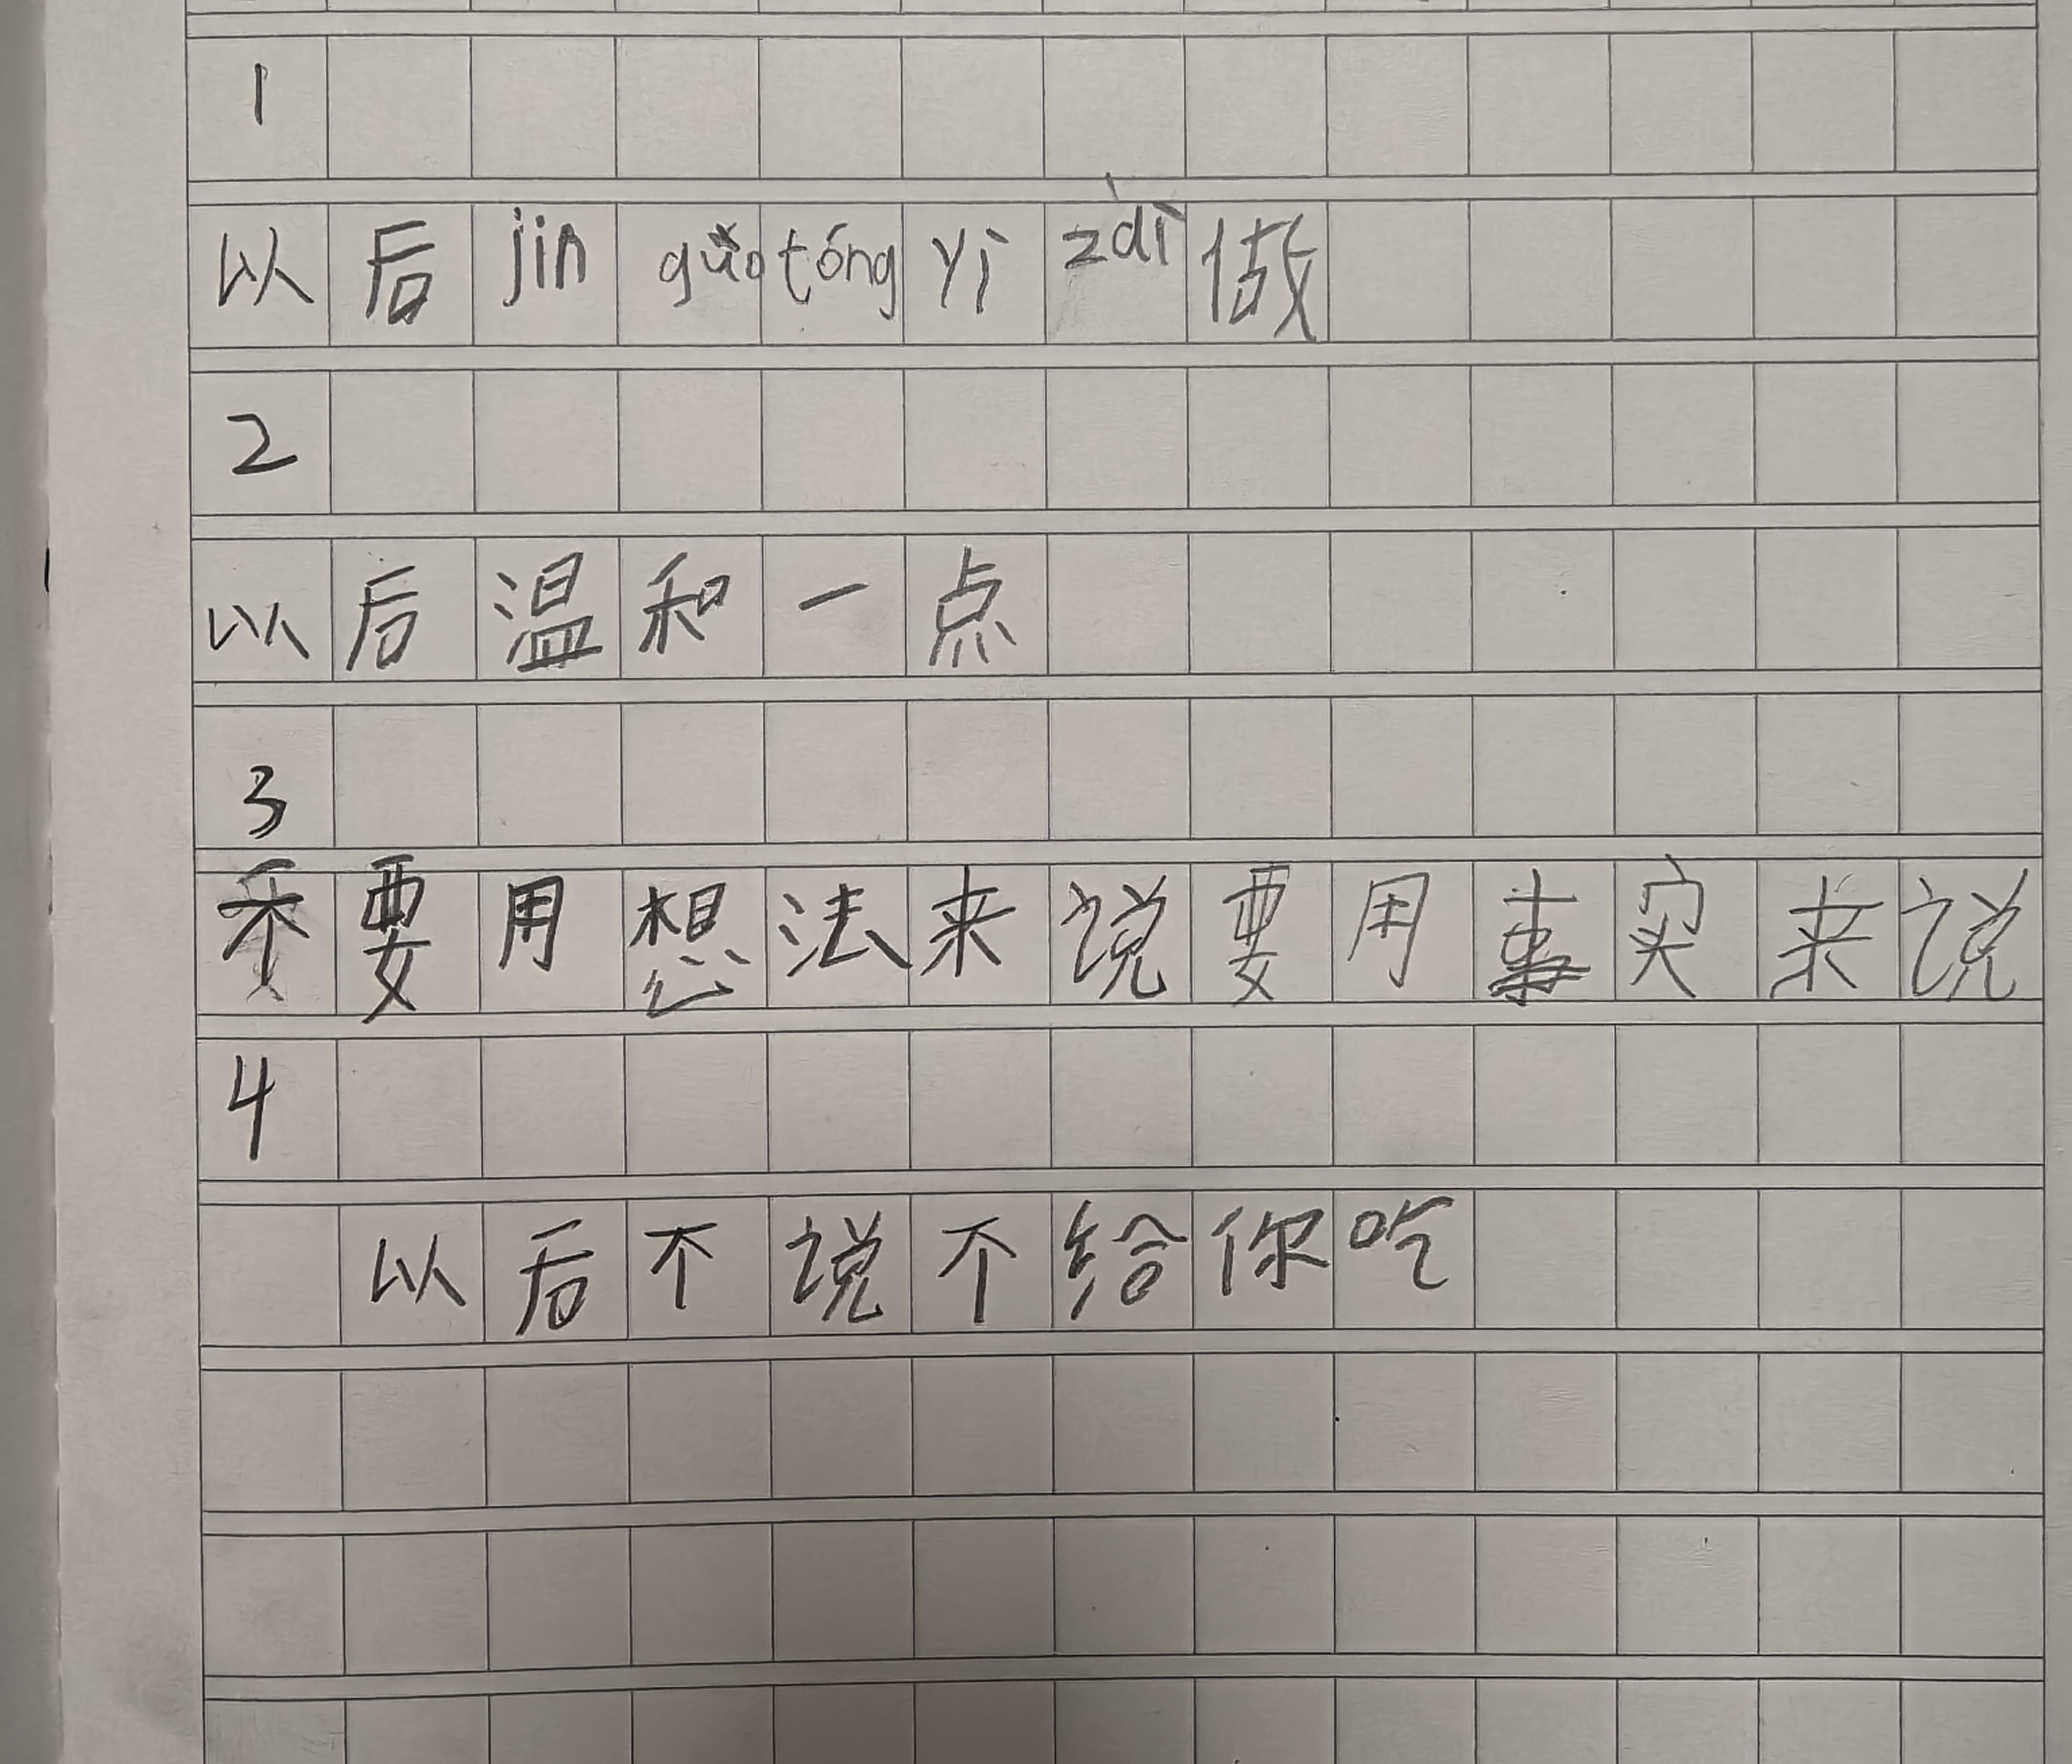 1
以后jin guǒ tóng yì zài做
2
以后温和一点
3
不要用想法来说要用事实来说
4
以后不说不给你吃